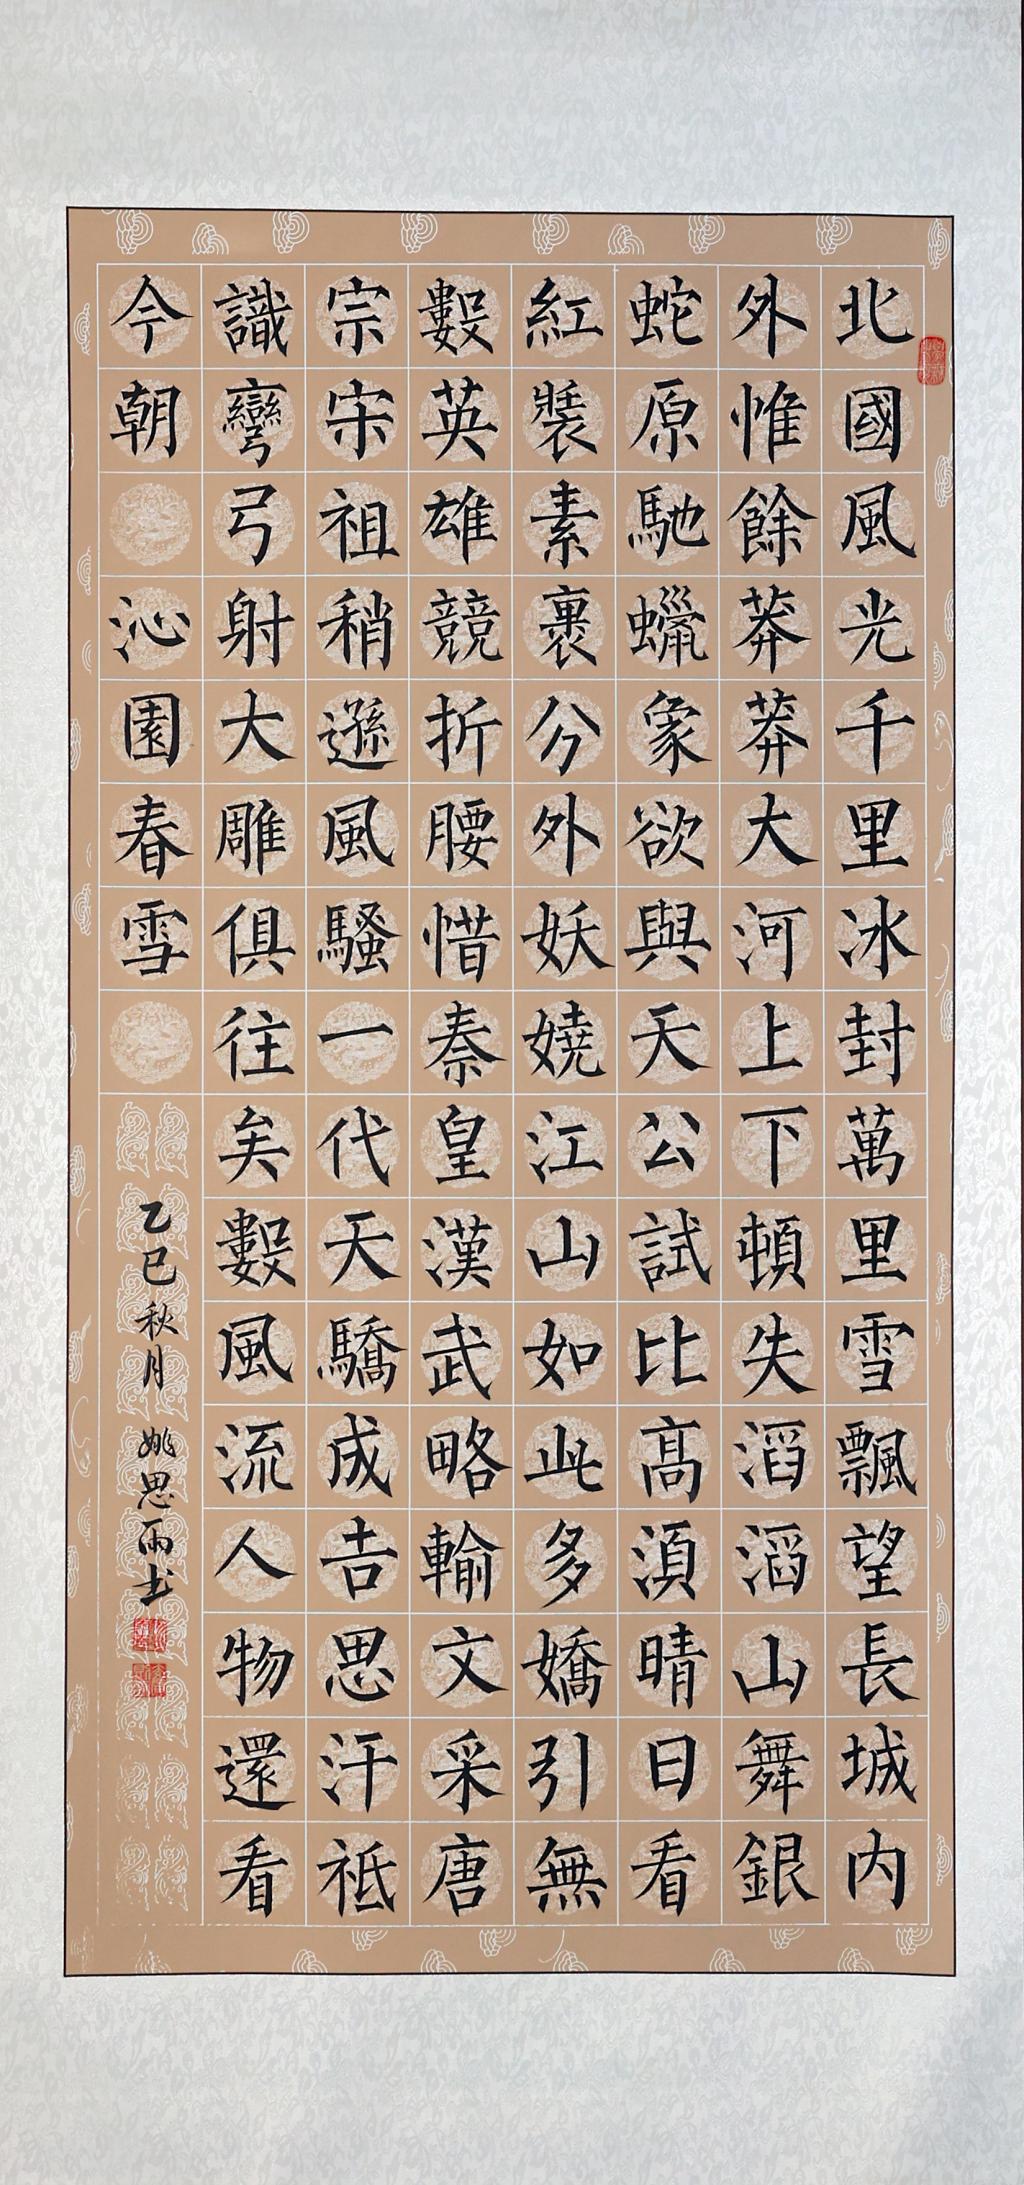 北國風光千里冰封萬里雪飄望長城内
外惟餘莽莽大河上下頓失滔滔山舞銀
蛇原馳蠟象欲與天公試比髙湏晴日看
紅裝素裹分外妖嬈江山如此多嬌引無
數英雄競折腰惜秦皇漢武略輸文采唐
宗宋祖稍遜風騷一代天驕成吉思汗祗
識彎弓射大雕俱往矣數風流人物還看
今朝 沁園春雪
乙巳秋月 姚思雨书